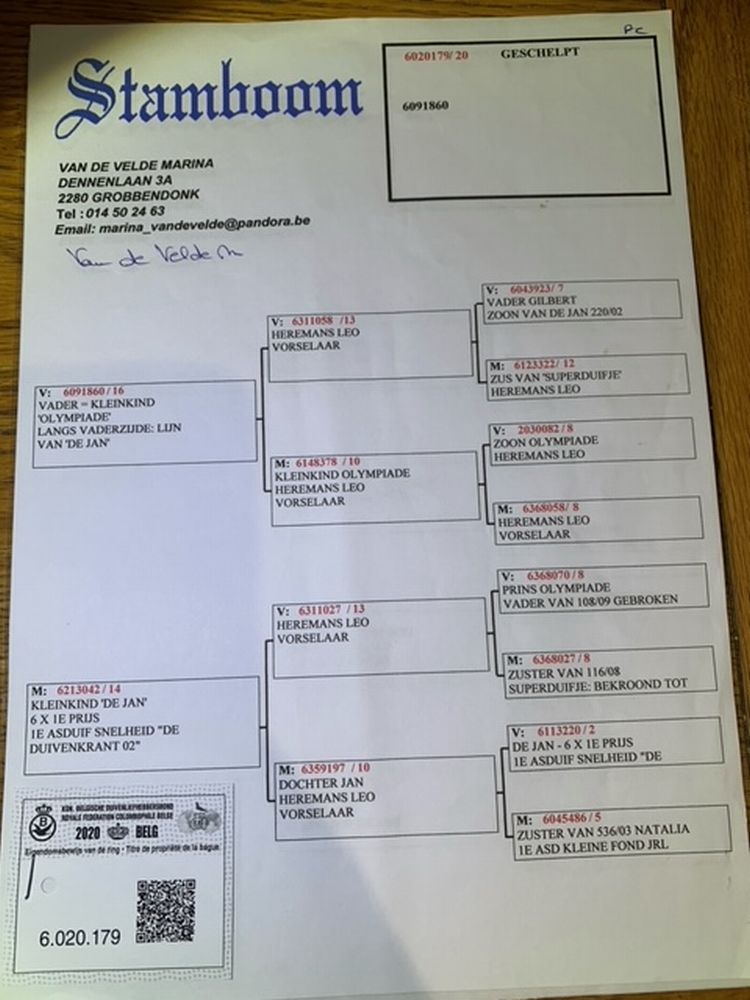 PC
Stamboom
6020179/ 20 GESCHELPT
6091860
VAN DE VELDE MARINA
DENNENLAAN 3A
2280 GROBBENDONK
Tel : 014 50 24 63
Email: marina_vandevelde@pandora.be
Van de Velde M
V: 6091860 / 16
VADER = KLEINKIND
'OLYMPIADE'
LANGS VADERZIJDE: LIJN
VAN 'DE JAN'
V: 6311058 /13
HEREMANS LEO
VORSELAAR
V: 6043923/ 7
VADER GILBERT
ZOON VAN DE JAN 220/02
M: 6123322/ 12
ZUS VAN 'SUPERDUIFJE'
HEREMANS LEO
M: 6148378 / 10
KLEINKIND OLYMPIADE
HEREMANS LEO
VORSELAAR
V: 2030082 / 8
ZOON OLYMPIADE
HEREMANS LEO
M: 6368058/ 8
HEREMANS LEO
VORSELAAR
M: 6213042 / 14
KLEINKIND 'DE JAN'
6 X 1E PRIJS
1E ASDUIF SNELHEID "DE
DUIVENKRANT 02"
V: 6311027 / 13
HEREMANS LEO
VORSELAAR
V: 6368070 / 8
PRINS OLYMPIADE
VADER VAN 108/09 GEBROKEN
M: 6368027 / 8
ZUSTER VAN 116/08
SUPERDUIFJE: BEKROOND TOT
M: 6359197 / 10
DOCHTER JAN
HEREMANS LEO
VORSELAAR
V: 6113220 / 2
DE JAN - 6 X 1E PRIJS
1E ASDUIF SNELHEID "DE
M: 6045486 / 5
ZUSTER VAN 536/03 NATALIA
1E ASD KLEINE FOND JRL
KON. BELGISCHE DUIVENLIEFHEBBERSBOND
ROYALE FEDERATION COLOMBOPHILE BELGE
2020 BELG
Eigendomsbewijs van de ring - Titre de propriété de la bague
6.020.179